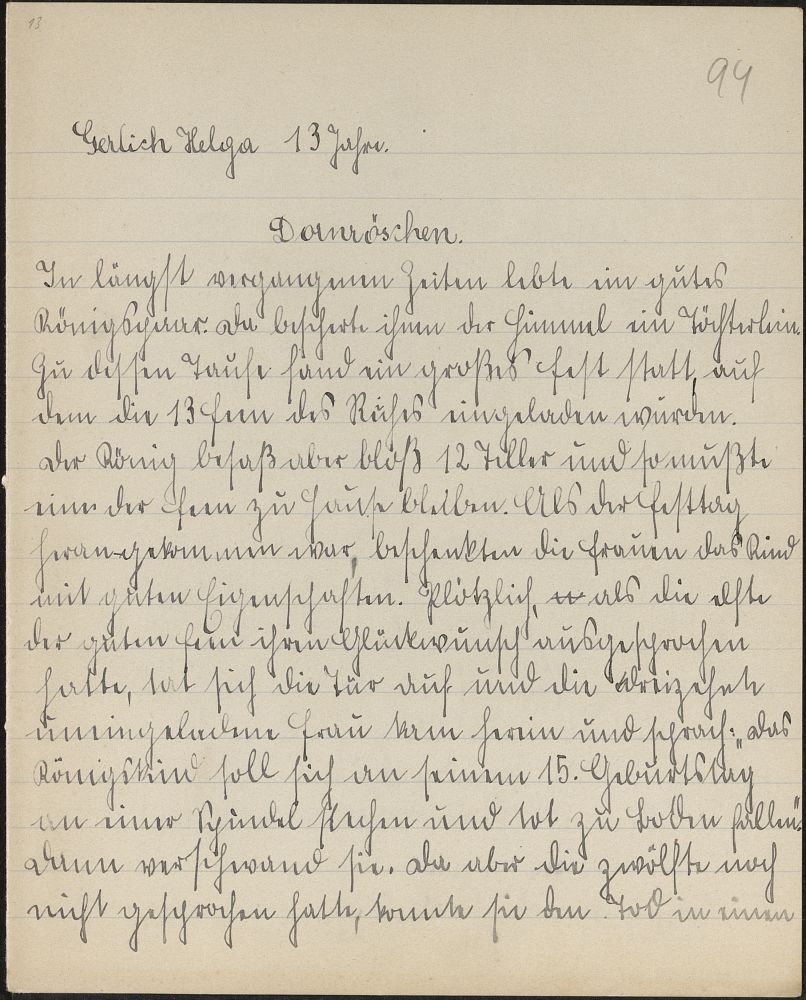 13
94
Gerlich Helga 13 Jahre.
Dornröschen.
In längst vergangenen Zeiten lebte ein gutes
Königspaar. Da bescherte ihnen der Himmel ein Töchterlein.
Zu dessen Taufe fand ein großes Fest statt, auf
dem die 13 Feen des Reiches eingeladen wurden.
Der König besaß aber bloß 12 Teller und so mußte
eine der Feen zu Hause bleiben. Als der Festtag
herangekommen war, beschenkten die Frauen das Kind
mit guten Eigenschaften. Plötzlich, als die elfte
der guten Feen ihren Glückwunsch ausgesprochen
hatte, tat sich die Tür auf und die dreizehnte
uneingeladene Frau kam herein und sprach: „Das
Königskind soll sich an seinem 15. Geburtstag
an einer Spindel stechen und tot zu Boden fallen“.
Dann verschwand sie. Da aber die zwölfte noch
nicht gesprochen hatte, konnte sie den Tod in einen